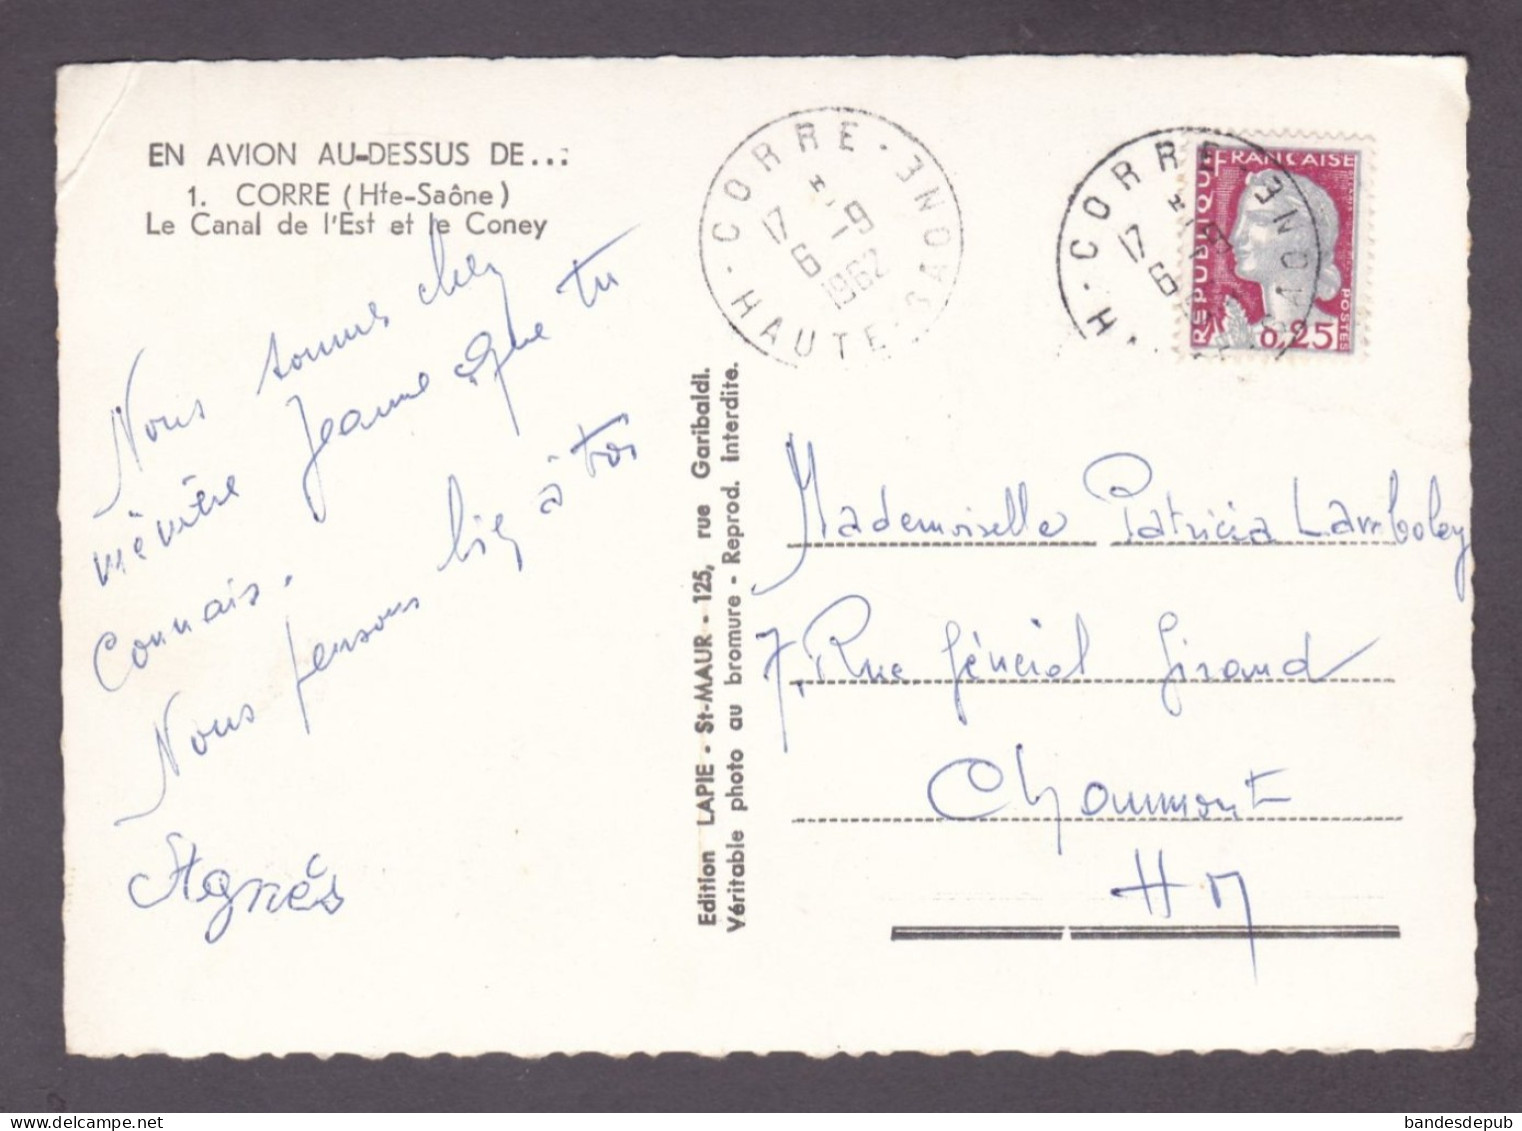 EN AVION AU-DESSUS DE...
1. CORRE (Hte-Saône)
Le Canal de l'Est et le Coney
Nous sommes chez
Jeanne que tu
connais.
Nous pensons bien à toi
Agnès
Edition LAPIE - St-MAUR - 125, rue Garibaldi.
Véritable photo au bromure - Reprod. Interdite.
CORRE - HAUTE-SAONE
17 H
6 - 9
1962
CORRE
HAUTE-SAONE
17 H
6
REPUBLIQUE FRANCAISE
POSTES
0,25
Mademoiselle Patricia Lamboley
7, Rue Général Giraud
Chaumont
H M
bandesdepub